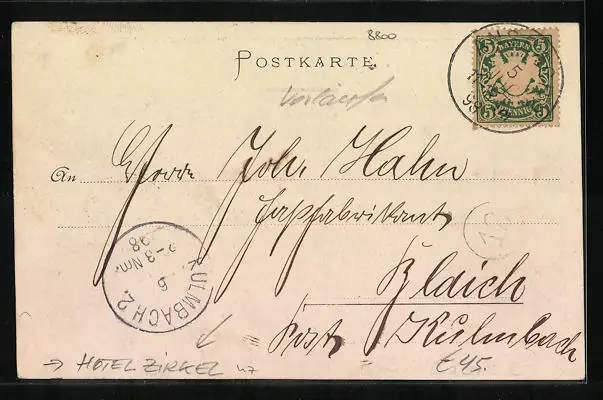 8800
POSTKARTE
Vorläufer
BAYERN
5 5
PFENNIG
5
98
An Herrn Joh. Hahn
Faßfabrikant
Blaich
Post Kulmbach
KULMBACH 2.
6
2-3 Nm.
98
→ HOTEL ZIRKEL
€ 45.